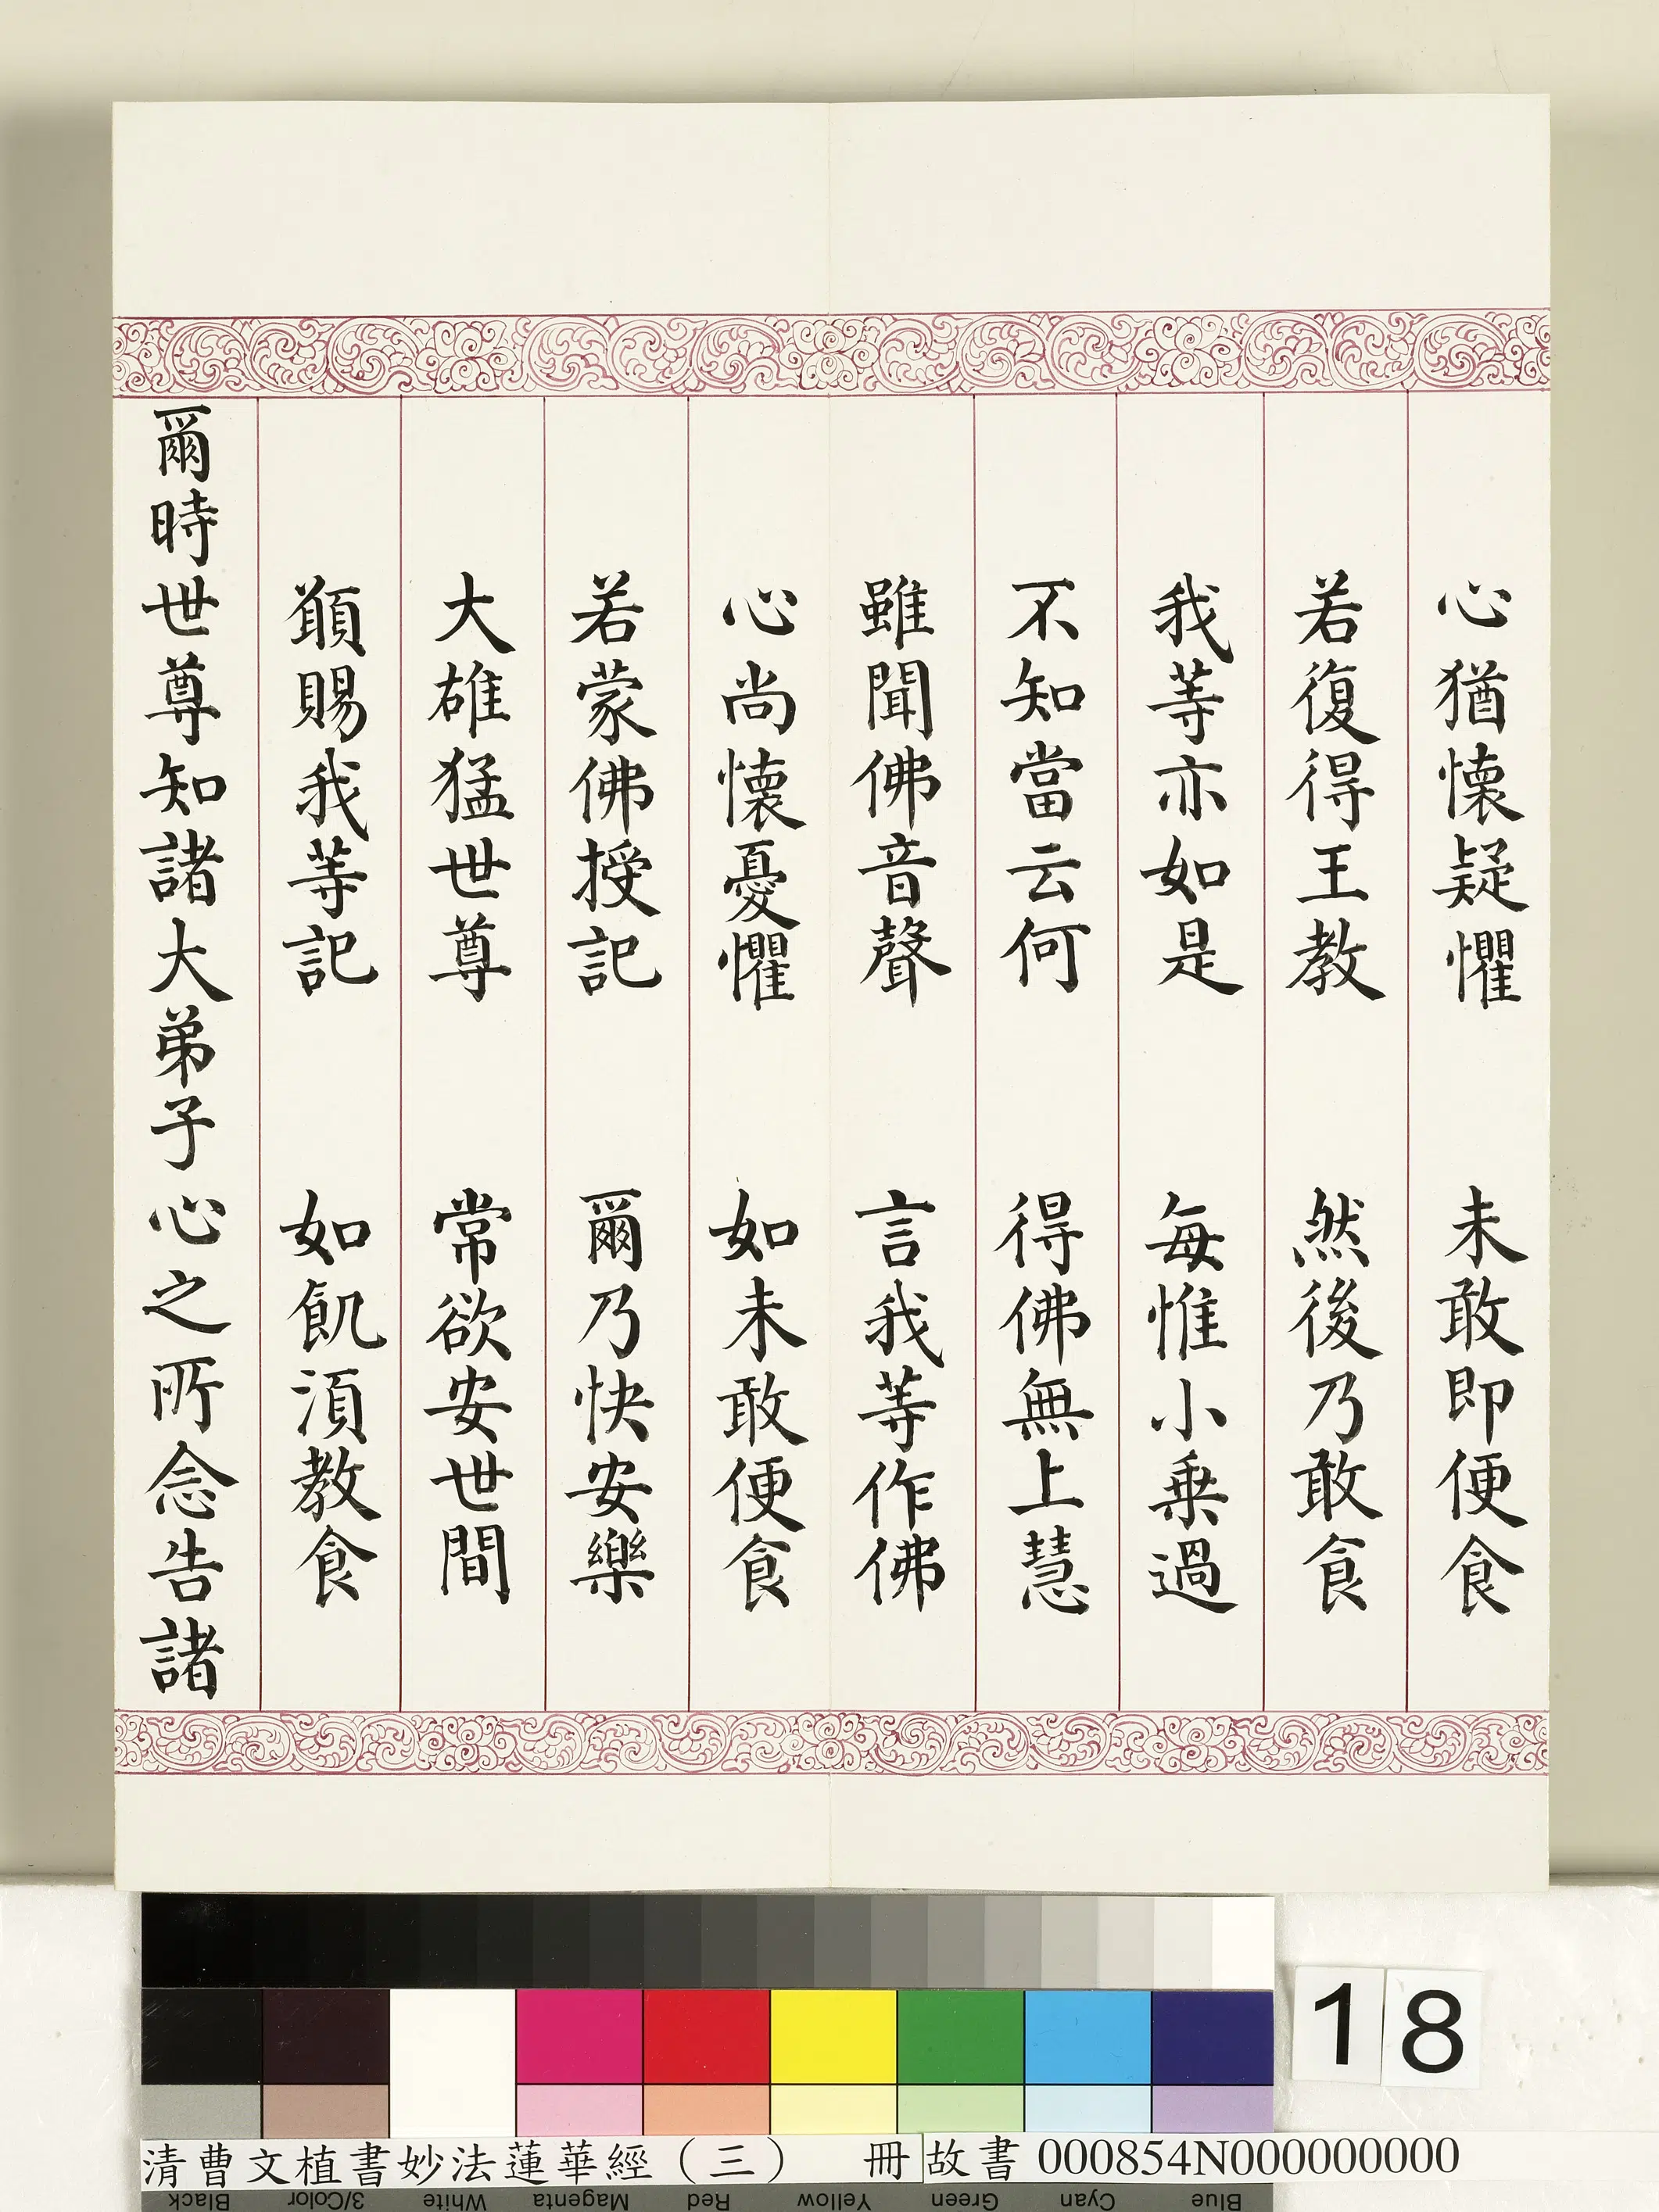 心猶懷疑懼　未敢即便食
若復得王教　然後乃敢食
我等亦如是　每惟小乗過
不知當云何　得佛無上慧
雖聞佛音聲　言我等作佛
心尚懷憂懼　如未敢便食
若蒙佛授記　爾乃快安樂
大雄猛世尊　常欲安世間
願賜我等記　如飢湏教食
爾時世尊知諸大弟子心之所念告諸
18
清曹文植書妙法蓮華經（三）　冊　故書 000854N000000000
Black 3/Color White Magenta Red Yellow Green Cyan Blue